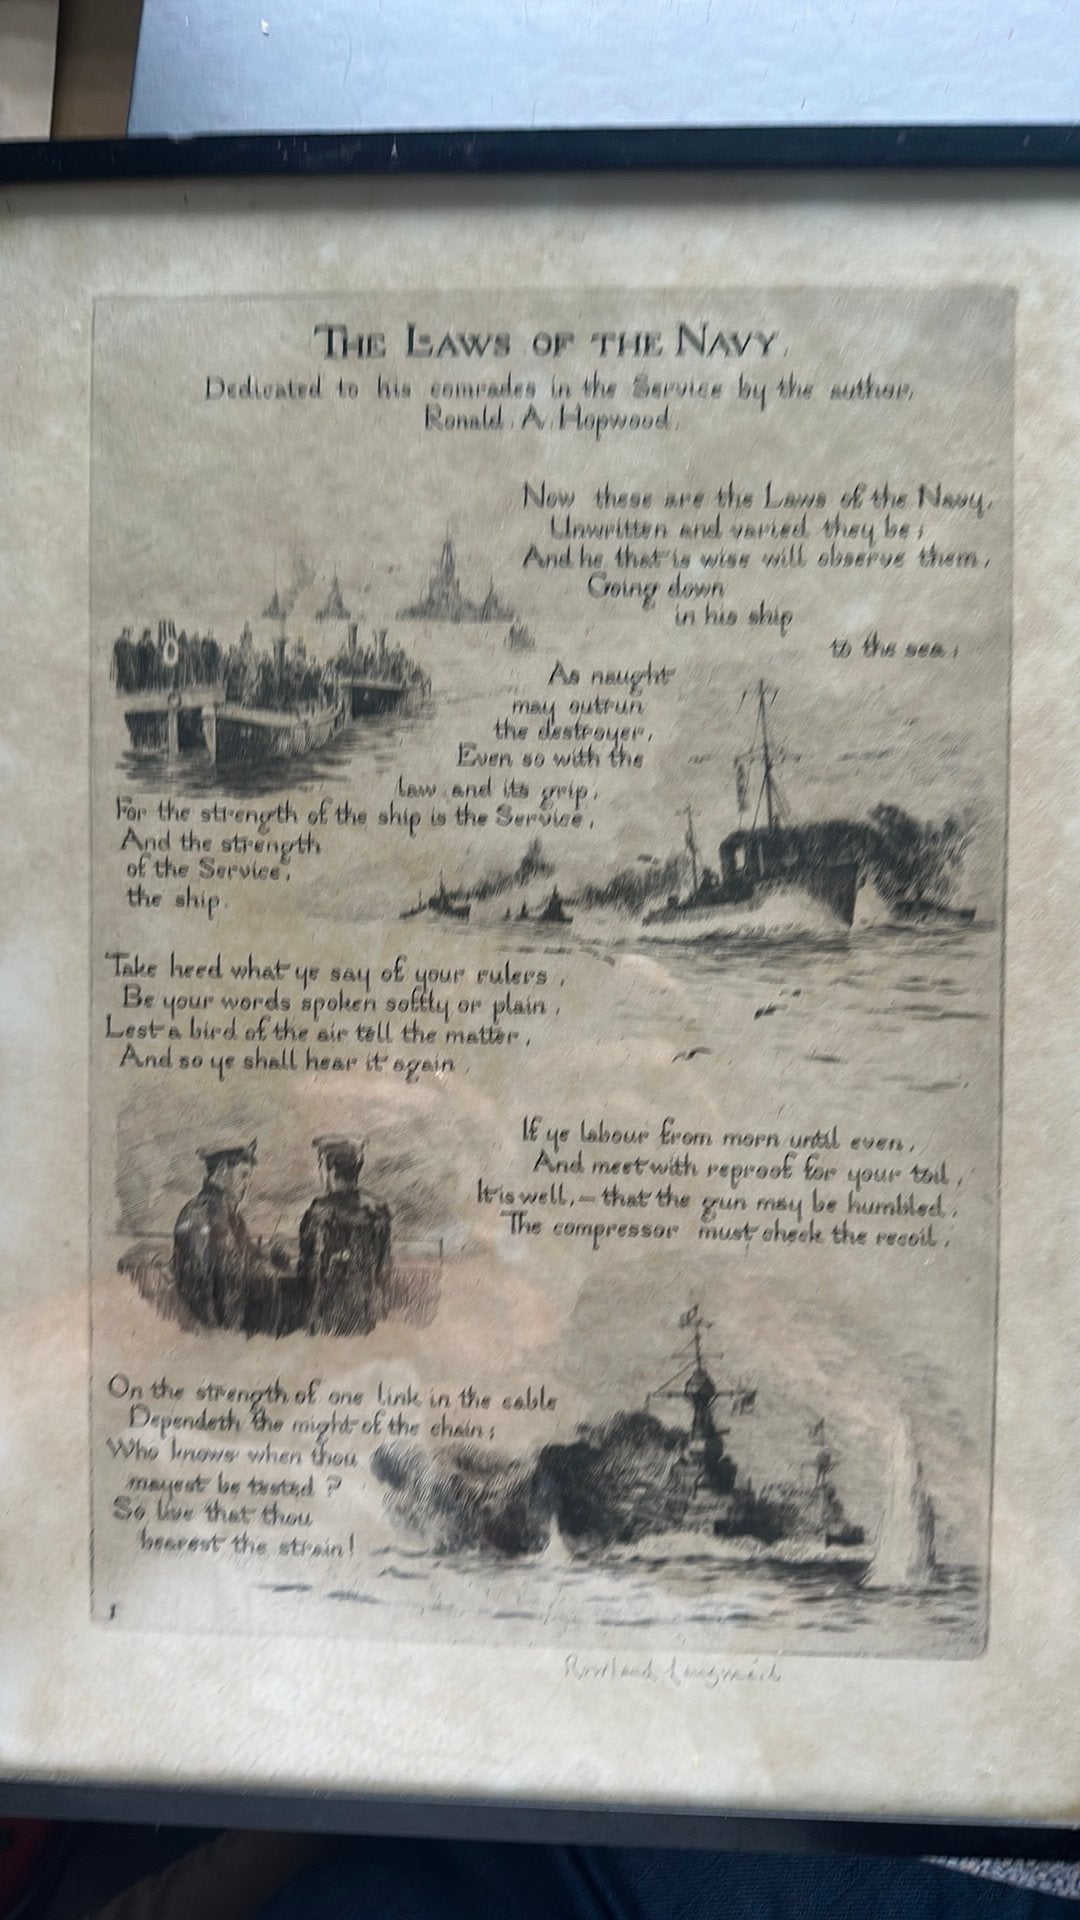 THE LAWS OF THE NAVY.
Dedicated to his comrades in the Service by the author,
Ronald. A. Hopwood.
Now these are the Laws of the Navy,
Unwritten and varied they be;
And he that is wise will observe them,
Going down
in his ship
to the sea;
As naught
may outrun
the destroyer,
Even so with the
law and its grip,
For the strength of the ship is the Service,
And the strength
of the Service,
the ship.
Take heed what ye say of your rulers,
Be your words spoken softly or plain,
Lest a bird of the air tell the matter,
And so ye shall hear it again.
If ye labour from morn until even,
And meet with reproof for your toil,
It is well, – that the gun may be humbled,
The compressor must check the recoil.
On the strength of one link in the cable
Dependeth the might of the chain;
Who knows when thou
mayest be tested?
So live that thou
bearest the strain!
1
Rowland Langmaid